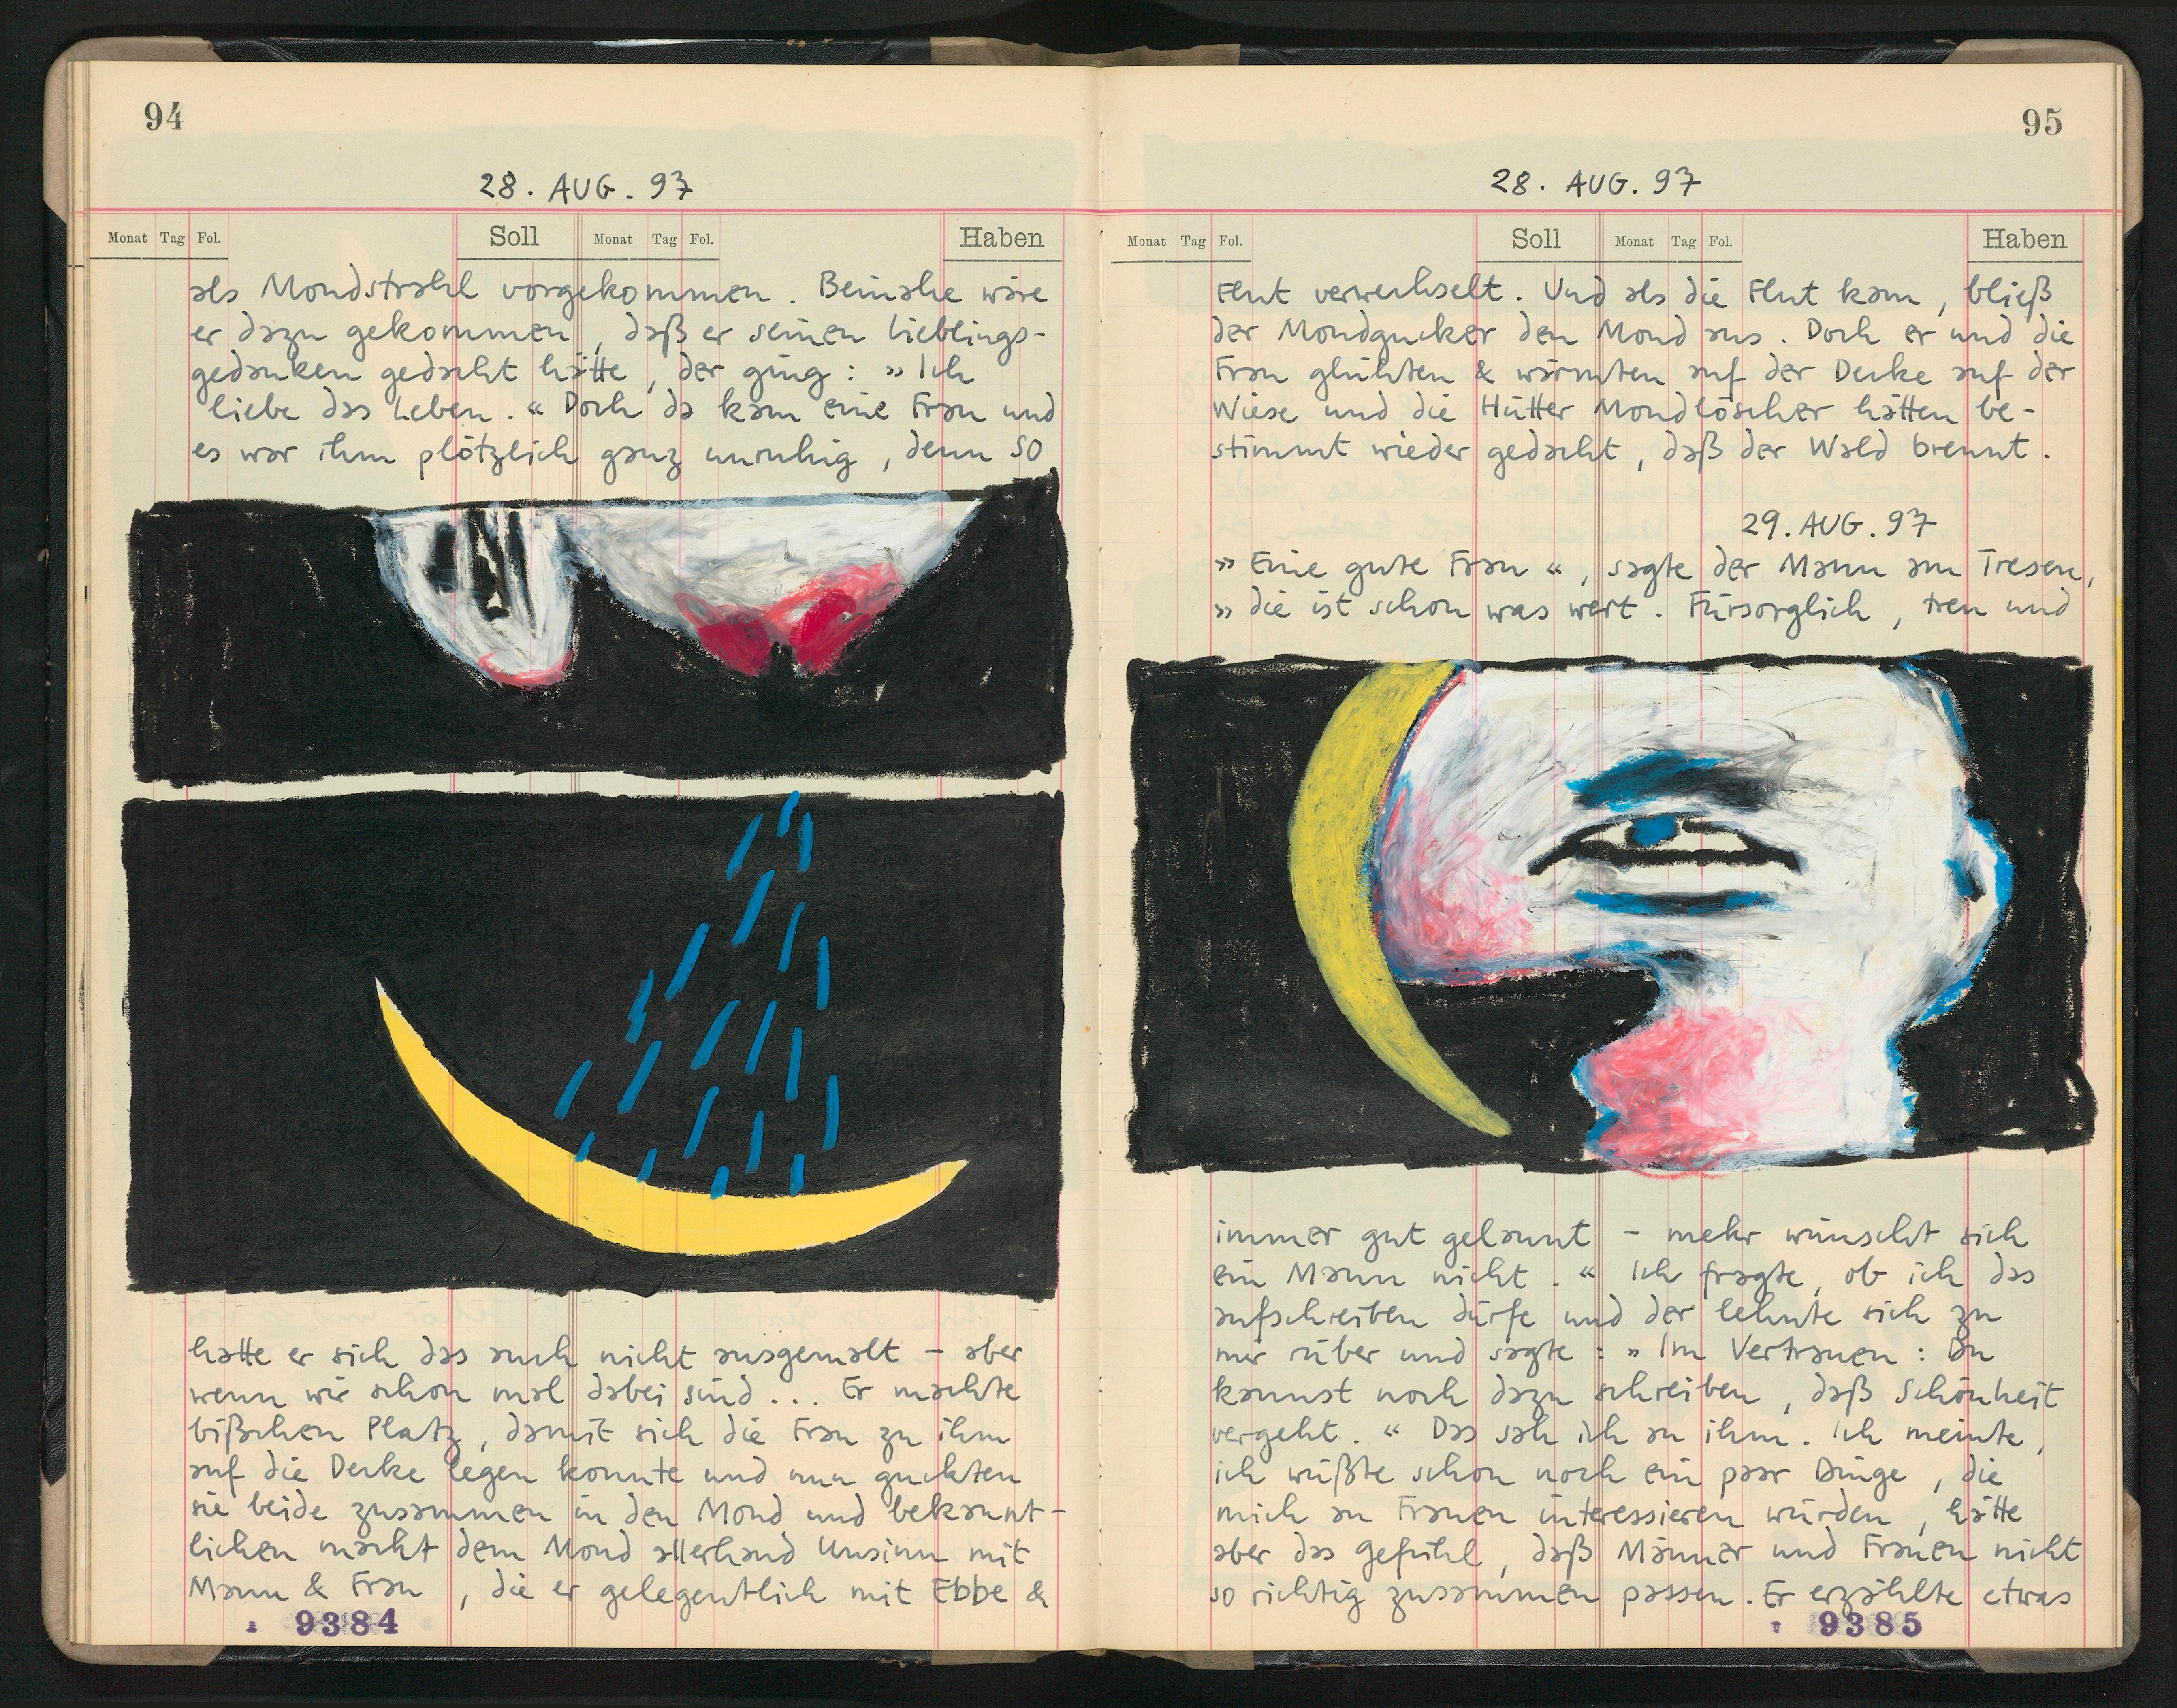 94
28. AUG. 97
Monat Tag Fol. Soll Monat Tag Fol. Haben
als Mondstrahl vorgekommen. Beinahe wäre
er dazu gekommen, daß er seinen Lieblings-
gedanken gedacht hätte, der ging: » Ich
liebe das Leben. « Doch da kam eine Frau und
es war ihm plötzlich ganz unruhig, denn so
hatte er sich das auch nicht ausgemalt – aber
wenn wir schon mal dabei sind... Er machte
bißchen Platz, damit sich die Frau zu ihm
auf die Decke legen konnte und nun guckten
sie beide zusammen in den Mond und bekannt-
lichen macht dem Mond allerhand Unsinn mit
Mann & Frau, die er gelegentlich mit Ebbe &
9384
95
28. AUG. 97
Monat Tag Fol. Soll Monat Tag Fol. Haben
Flut verwechselt. Und als die Flut kam, bließ
der Mondgucker den Mond aus. Doch er und die
Frau glühten & wärmten auf der Decke auf der
Wiese und die Hütter Mondlöscher hätten be-
stimmt wieder gedacht, daß der Wald brennt.
29. AUG. 97
» Eine gute Frau «, sagte der Mann am Tresen,
» die ist schon was wert. Fürsorglich, treu und
immer gut gelaunt – mehr wünscht sich
ein Mann nicht. « Ich fragte, ob ich das
aufschreiben dürfe und der lehnte sich zu
mir rüber und sagte: » Im Vertrauen: Du
kannst noch dazu schreiben, daß Schönheit
vergeht. « Das sah ich an ihm. Ich meinte,
ich wüßte schon noch ein paar Dinge, die
mich an Frauen interessieren würden, hätte
aber das Gefühl, daß Männer und Frauen nicht
so richtig zusammen passen. Er erzählte etwas
9385